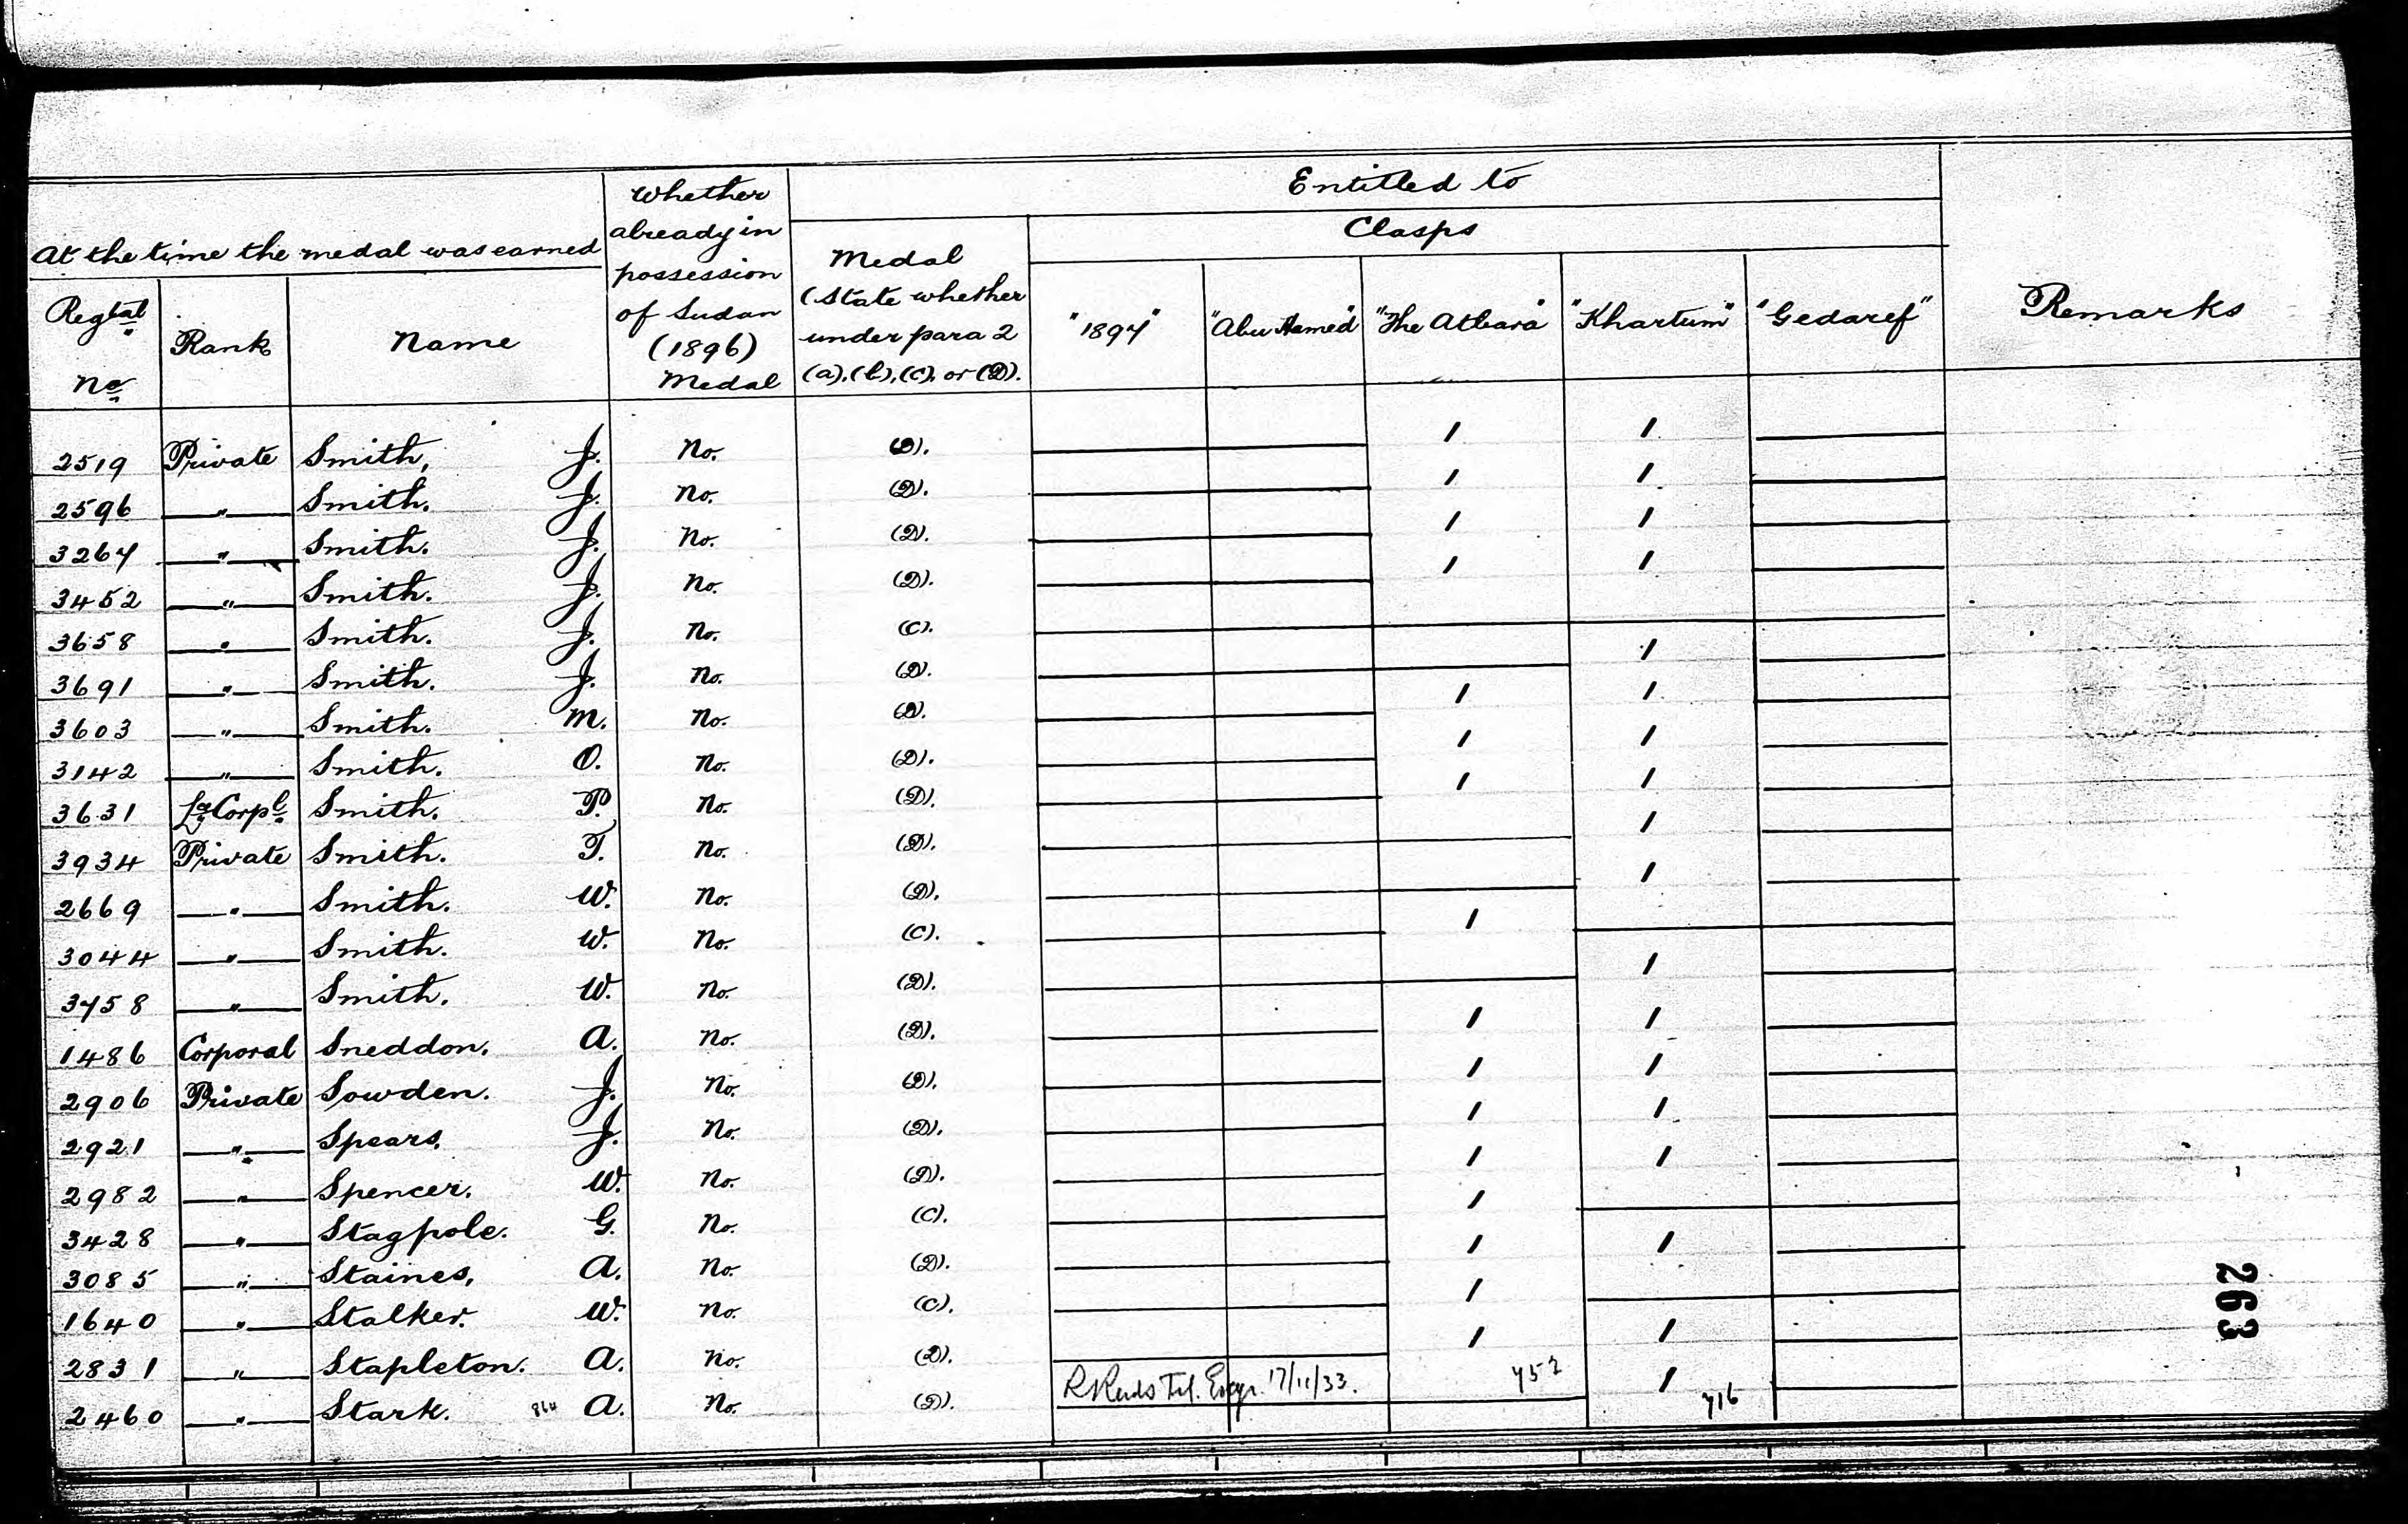 Entitled to
Clasps
At the time the medal was earned
Whether already in possession of Sudan (1896) Medal
Medal (State whether under para 2 (a), (b), (c), or (D).
Regtal No. Rank Name "1897" "Abu Hamed" "The Atbara" "Khartum" "Gedaref" Remarks
2519 Private Smith, J. No. (D). / /
2596 " Smith. J. No. (D). / /
3267 " Smith. J. No. (D). / /
3452 " Smith. J. No. (D). / /
3658 " Smith. J. No. (C).
3691 " Smith. J. No. (D). /
3603 " Smith. M. No. (D). / /
3142 " Smith. O. No. (D). / /
3631 Lce Corpl. Smith. P. No. (D). / /
3934 Private Smith. T. No. (D). /
2669 " Smith. W. No. (D). /
3044 " Smith. W. No. (C). /
3758 " Smith. W. No. (D). /
1486 Corporal Sneddon. A. No. (D). / /
2906 Private Sowden. J. No. (D). / /
2921 " Spears. J. No. (D). / /
2982 " Spencer. W. No. (D). / /
3428 " Stagpole. G. No. (C). /
3085 " Staines. A. No. (D). / /
1640 " Stalker. W. No. (C). /
2831 " Stapleton. A. No. (D). / /
2460 " Stark. 864 A. No. (D). 17/11/33. 752 / 716
263